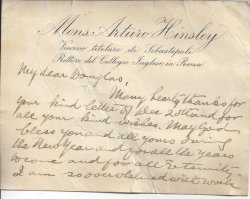 Mons. Arturo Hinsley
Vescovo titolare di Sebastopoli
Rettore del Collegio Inglese in Roma
My dear Douglas,
Many hearty thanks for
your kind letter of Dec 20th and for
all your kind wishes. May God
bless you and all yours during
the New Year and for all the years
to come and for all Eternity.
I am so overwhelmed with work